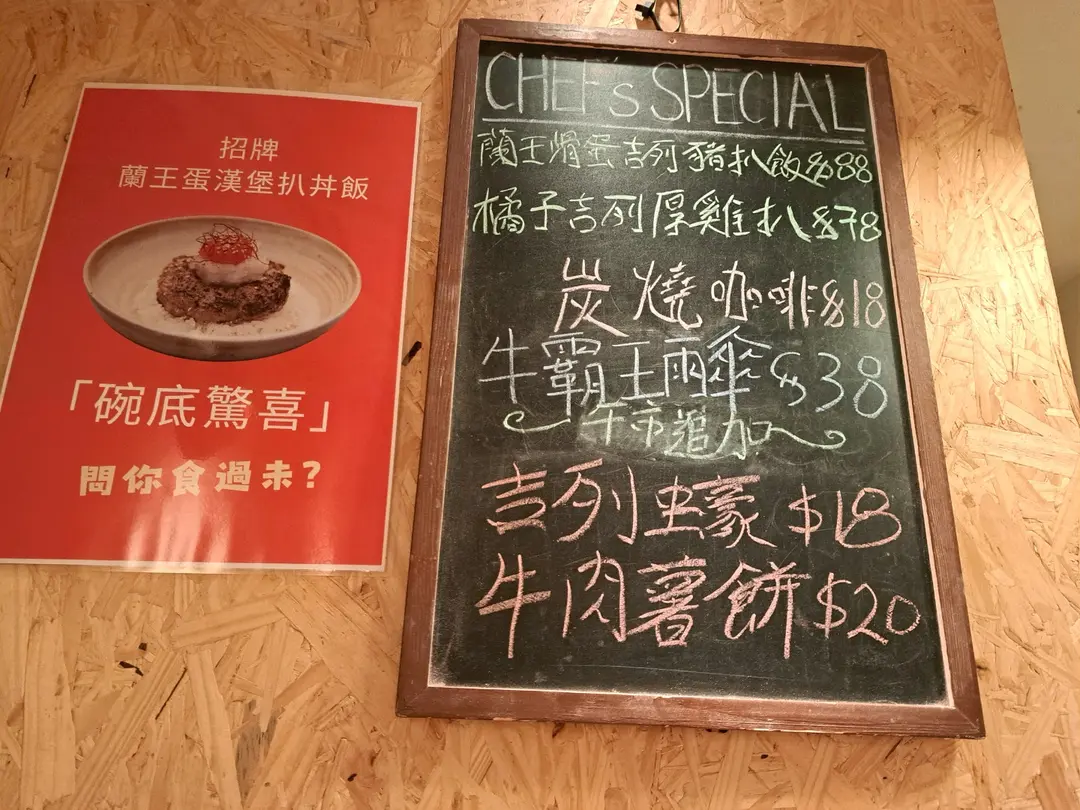 招牌
蘭王蛋漢堡扒丼飯
「碗底驚喜」
問你食過未?
CHEF's SPECIAL
蘭王滑蛋吉列豬扒飯$88
橘子吉列厚雞扒$78
炭燒咖啡$18
牛霸王雨傘$38
牛市追加
吉列蚝$18
牛肉薯餅$20